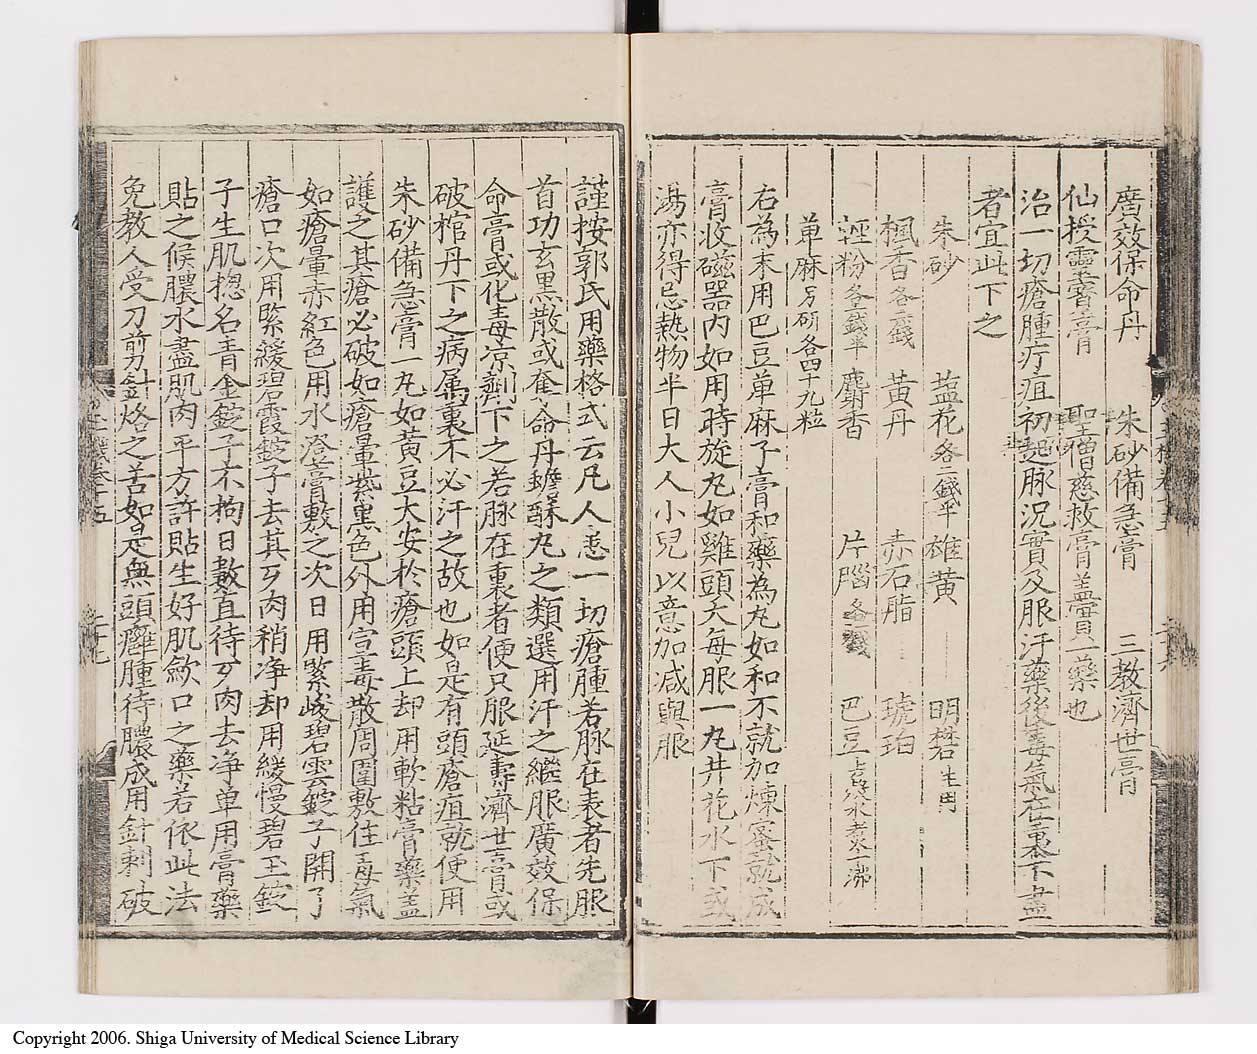 廣效保命丹　朱砂備急膏　三教濟世膏
仙授靈寶膏　聖僧慈救膏盖實一藥也
治一切瘡腫疔疽初起脉況實及服汗藥後毒氣在裏不盡
者宜此下之
朱砂　塩花各二錢半　雄黄　明礬生用
楓香各二錢　黄丹　赤石脂　琥珀
輕粉各一錢半　麝香　片腦各一錢　巴豆去殼水煮十沸
萆麻另研各四十九粒
右為末用巴豆萆麻子膏和藥為丸如和不就加煉蜜就成
膏收磁器内如用時旋丸如雞頭大每服一丸井花水下或
湯亦得忌熱物半日大人小兒以意加减與服
謹按郭氏用藥格式云凡人患一切瘡腫若脉在表者先服
首功玄黒散或奪命丹蟾酥丸之類選用汗之繼服廣效保
命膏或化毒凉劑下之若脉在裏者便只服延壽濟世膏或
破棺丹下之病属裏不必汗之故也如是有頭瘡疽就便用
朱砂備急膏一丸如黄豆大安於瘡頭上却用軟粘膏藥盖
護之其瘡必破如瘡暈紫黒色外用宣毒散周圍敷住毒氣
如瘡暈赤紅色用水澄膏敷之次日用緊峻碧雲錠子開了
瘡口次用緊緩碧霞錠子去其歹肉稍净却用緩慢碧玉錠
子生肌揔名青金錠子不拘日數直待歹肉去净单用膏藥
貼之候膿水盡肌肉平方許貼生好肌歛口之藥若依此法
免教人受刀剪針烙之苦如是無頭癰腫待膿成用針刺破